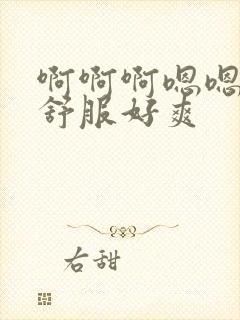 啊啊啊嗯嗯
舒服好爽
右甜